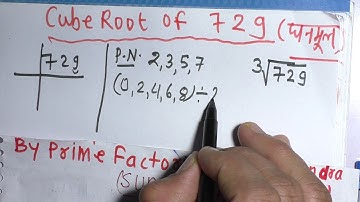 Cube Root of 729 (घनमूल)
729
P.N. 2,3,5,7
(0,2,4,6,8)÷2
3√729
By Prime Factor